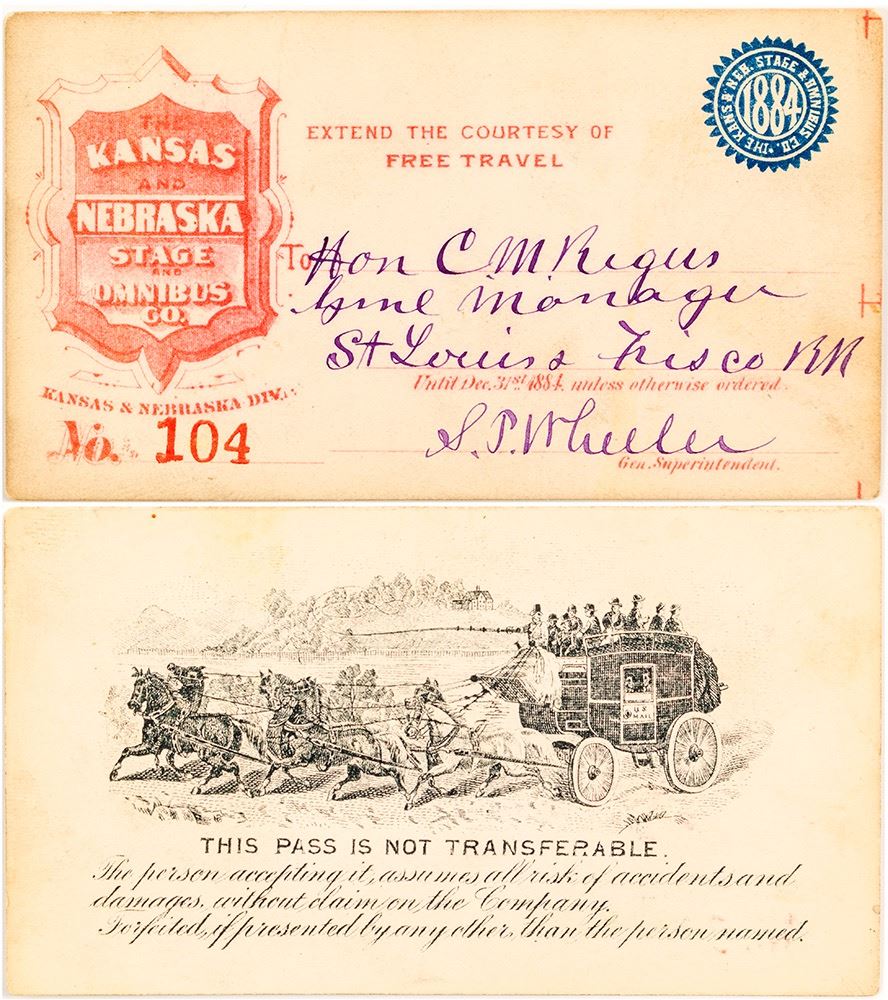 THE
KANSAS
AND
NEBRASKA
STAGE
AND
OMNIBUS
CO.
KANSAS & NEBRASKA DIV.
No. 104
EXTEND THE COURTESY OF
FREE TRAVEL
THE KANS & NEB. STAGE & OMNIBUS CO.
1884
To Hon C M
Genl Manager
St Louis & Frisco RR
Until Dec. 31st 1884, unless otherwise ordered.
S. P. Wheeler
Gen. Superintendent.
U.S.
MAIL
THIS PASS IS NOT TRANSFERABLE.
The person accepting it, assumes all risk of accidents and
damages, without claim on the Company.
Forfeited, if presented by any other, than the person named.